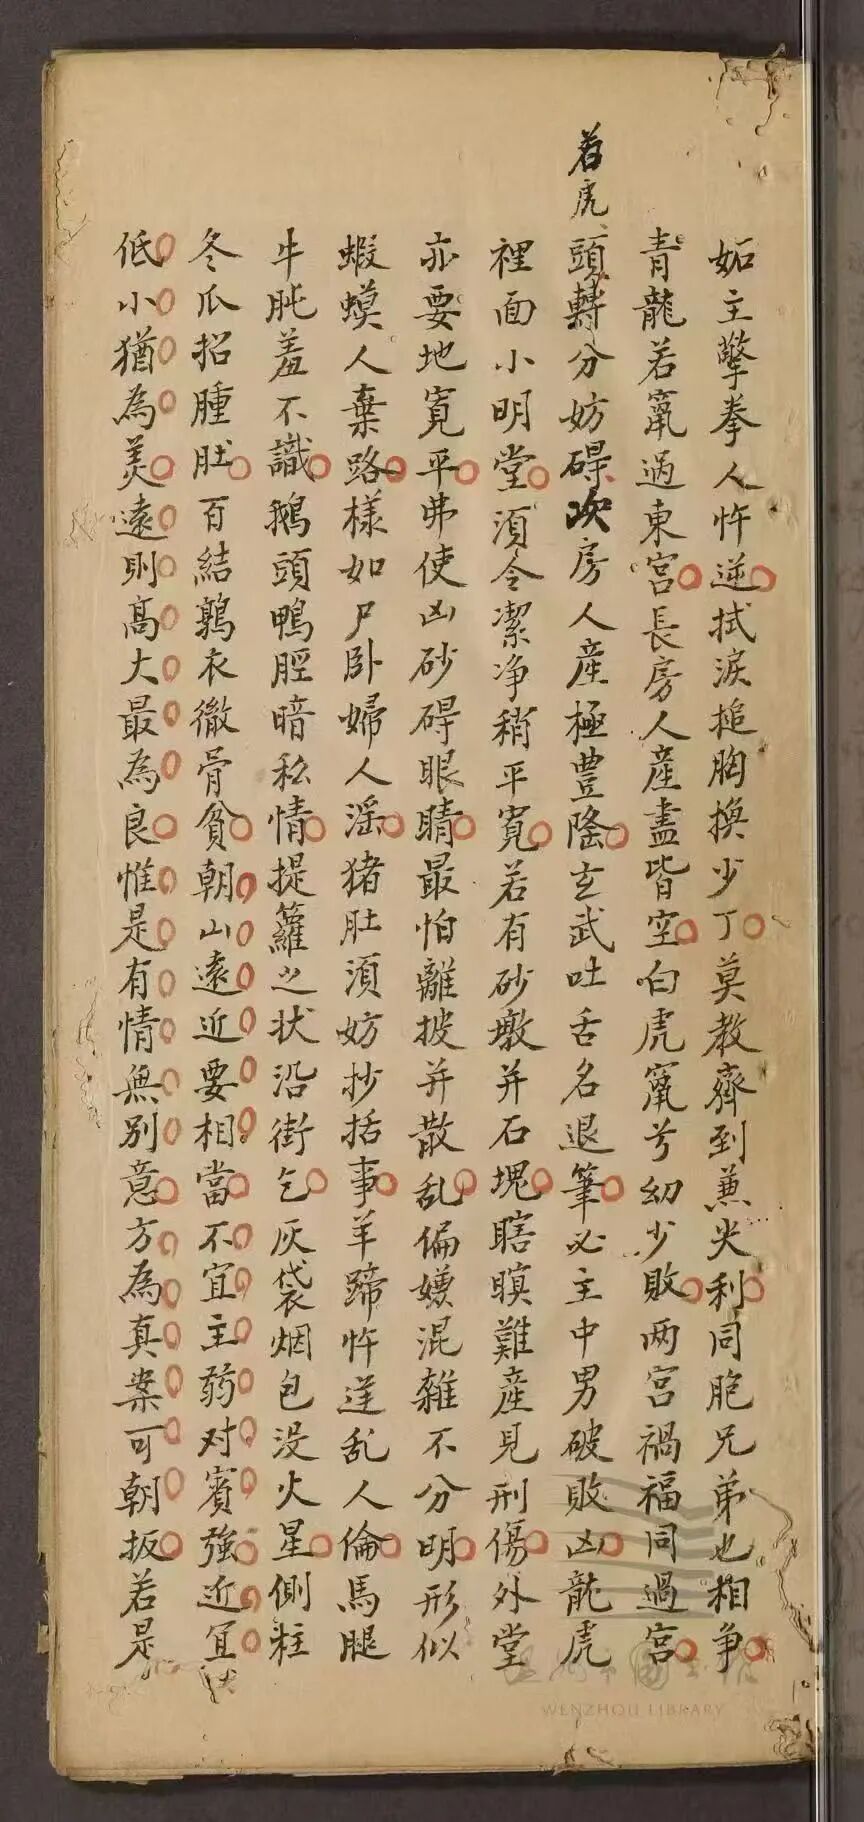 妬主擎拳人忤逆拭淚搥胸換少丁莫教齊到兼尖利同胞兄弟也相争
青龍若竄過東宮長房人產盡皆空白虎竄兮幼少敗两宮禍福同過宮
若虎頭轉分妨碍次房人產極豊隆玄武吐舌名退筆必主中男破敗凶龍虎
裡面小明堂須令潔净稍平寬若有砂墩并石塊瞎瞑難產見刑傷外堂
亦要地寬平弗使凶砂碍眼睛最怕離披并散乱偏嫌混雜不分明形似
蝦蟆人棄路樣如尸卧婦人滛猪肚須妨抄括事羊蹄忤逆乱人倫馬腿
牛肫羞不識鵝頭鴨脛暗私情提籮之状沿街乞灰袋烟包没火星側
冬瓜招腫肚百結鶉衣徹骨貧朝山遠近要相當不宜主弱对賓強近宜
低小猶為美遠則髙大最為良惟是有情無别意方為真案可朝扳若是
WENZHOU LIBRARY